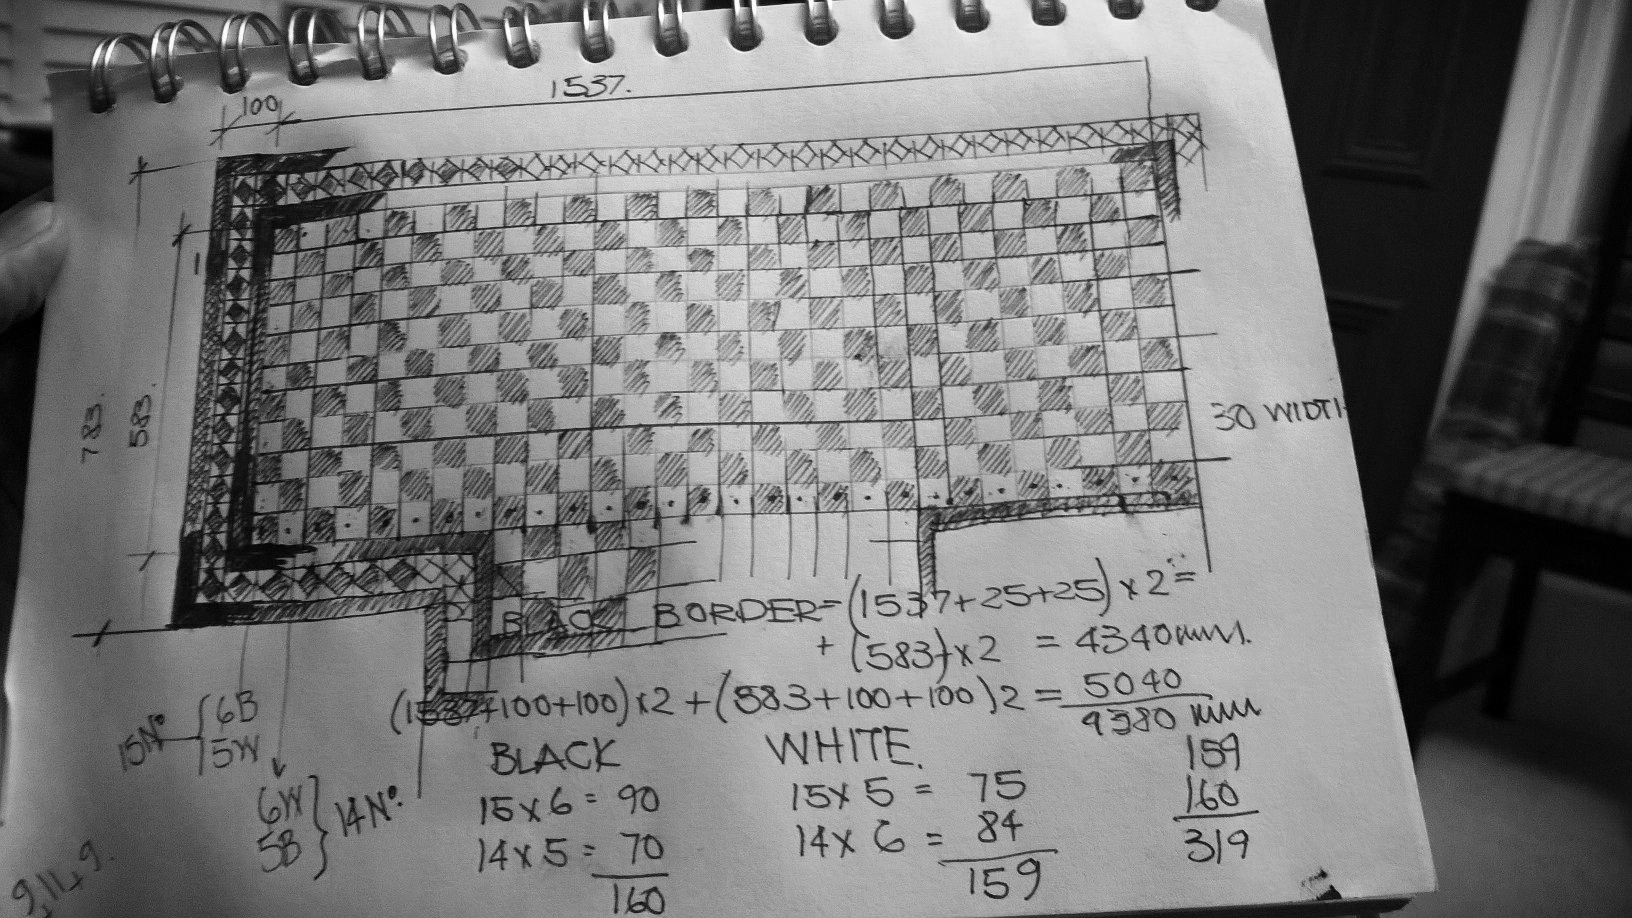 1537.
100
783.
583.
30 WIDTH
BLACK BORDER = (1537+25+25) x 2 =
+ (583) x 2 = 4340mm.
(1537+100+100) x 2 + (583+100+100) 2 = 5040
9380 mm
15Nº { 6B
5W
6W
5B } 14Nº.
BLACK
15 x 6 = 90
14 x 5 = 70
160
WHITE.
15 x 5 = 75
14 x 6 = 84
159
159
160
319
9,11,9.